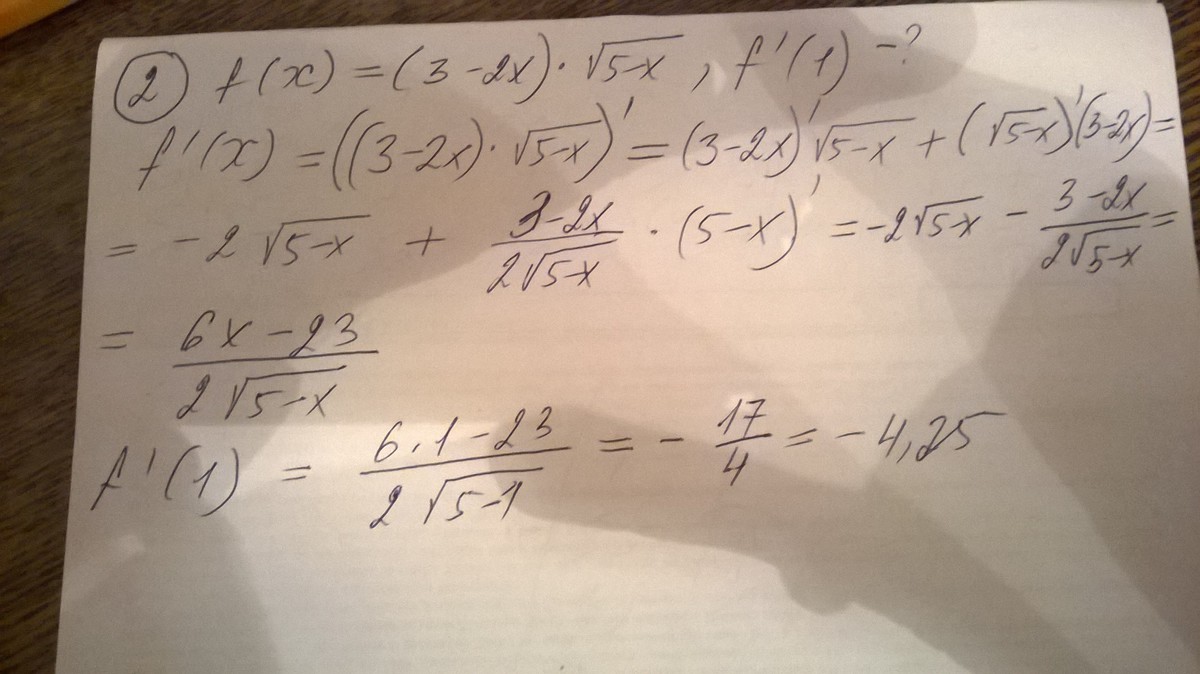 ② f(x) = (3-2x)·√5-x , f'(1) -?
f'(x) = ((3-2x)·√5-x)' = (3-2x)'√5-x + (√5-x)'(3-2x) =
= -2 √5-x + 3-2x/2√5-x · (5-x)' = -2√5-x - 3-2x/2√5-x =
= 6x-23/2√5-x
f'(1) = 6·1-23/2√5-1 = - 17/4 = -4,25